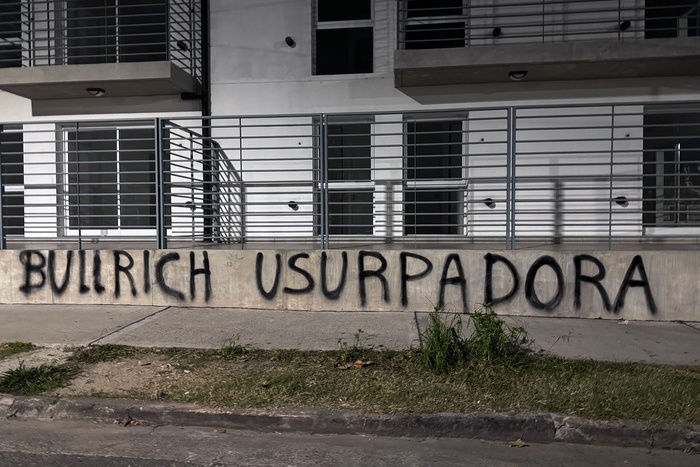 BULLRICH USURPADORA